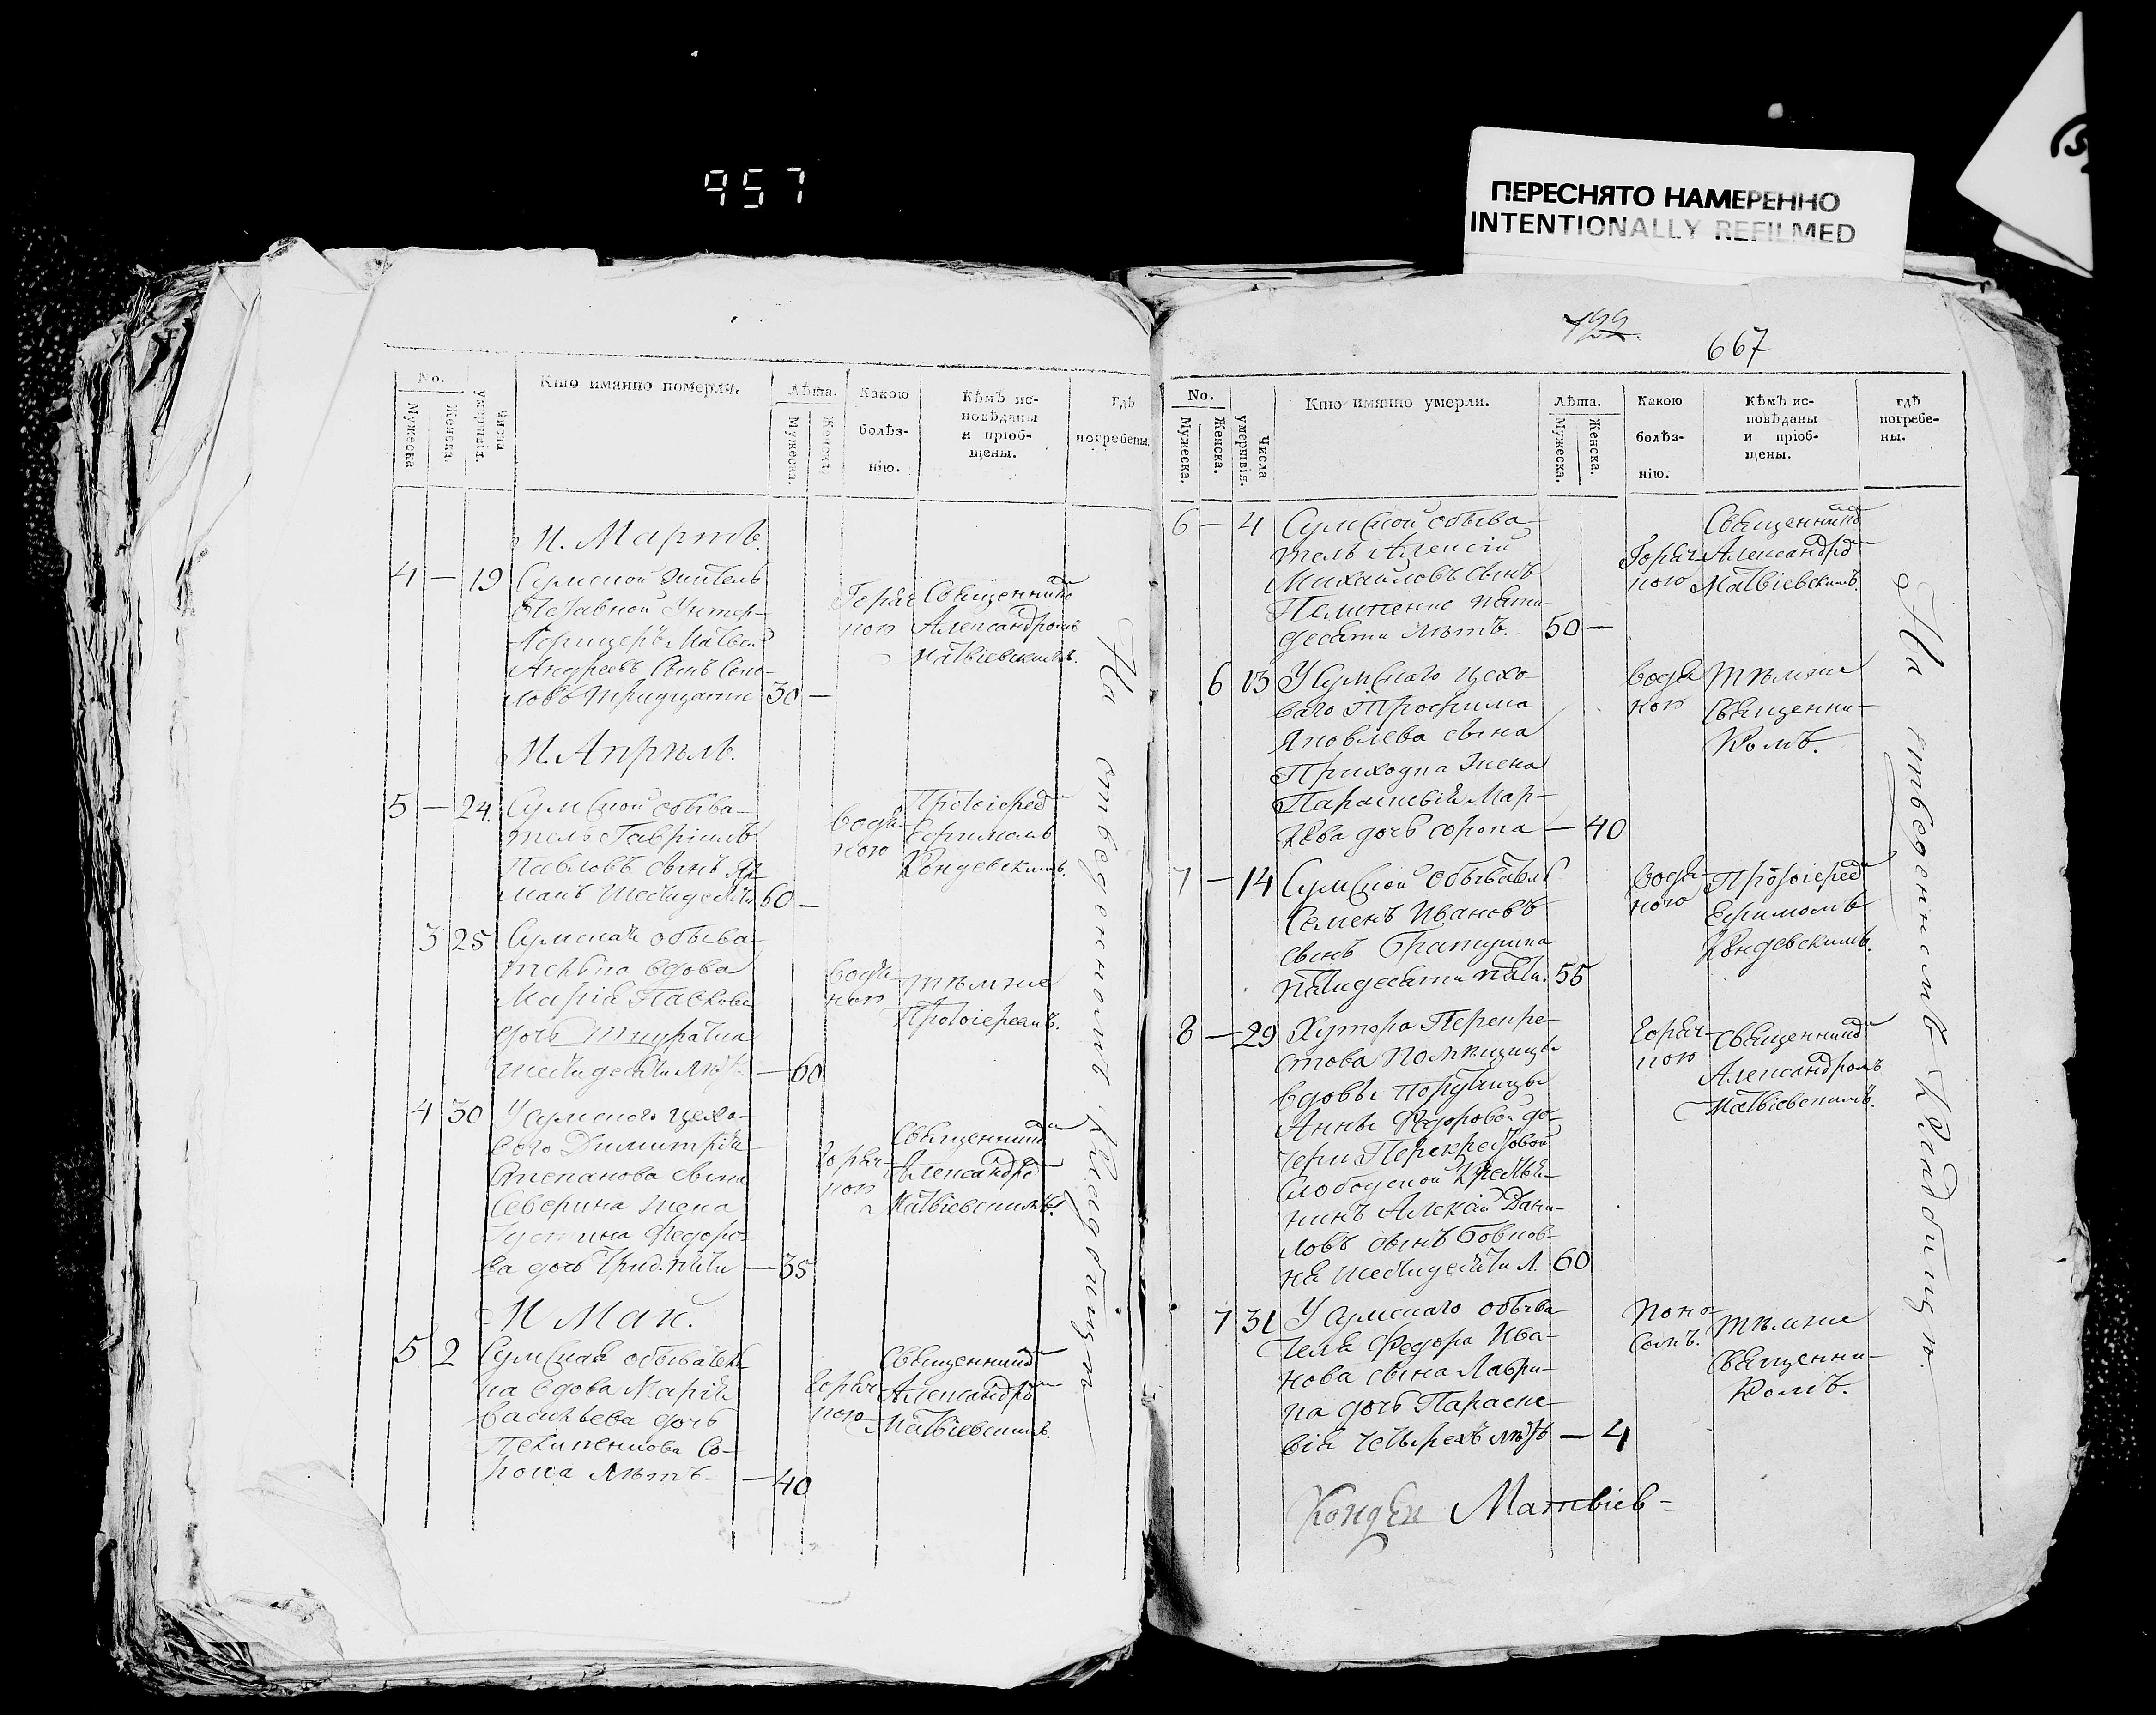 957
ПЕРЕСНЯТО НАМЕРЕННО
INTENTIONALLY REFILMED
No.
Мужеска.
Женска.
числа умертвія.
Кто имянно померли.
Лѣта.
Мужеска.
Женска.
Какою болѣз-
нію.
Кѣмъ ис-
повѣданы
и пріоб-
щены.
гдѣ
погребены.
М. Мартъ.
4 — 19 Сумской житель
Унтер-
Офицеръ Матвей
Андреевъ сынъ Соко-
ловъ тридцати 30 —
Горяч
кою
Священнико
Александромъ
Матвіевскимъ.
М. Апрѣль.
5 — 24. Сумской обыва-
тель Гавріилъ
Павловъ сынъ
манъ шестидесяти 60 —
водя-
ною
Протоіерео
Ефимомъ
Кондевскимъ.
3 25 Сумская обыва-
телька вдова
Марія Павлова
дочь
шестидесяти лѣтъ. — 60
водя
ною
тѣмже
Протоіереемъ.
4 30 У сумского цехо-
вого Димитрія
Степанова сына
Северина жена
Іустина Федоро-
ва дочь трид. пяти — 35
горяч-
кою
Священнико
Александро
Матвіевскимъ.
М Маія.
5 2 Сумская обывател-
ка вдова Марія
Васильева дочь
Со-
рока лѣтъ — 40
горяч
кою
Священнико
Александро
Матвіевскимъ.
На отведенномъ кладбищѣ
667
No.
Мужеска.
Женска.
Числа умертвія.
Кто имянно умерли.
Лѣта.
Мужеска.
Женска.
Какою
болѣз-
нію.
Кѣмъ ис-
повѣданы
и пріоб-
щены.
гдѣ
погребе-
ны.
6 — 4 Сумской обыва-
тель Алексій
Михайловъ сынъ
пяти-
десяти лѣтъ. 50 —
Горяч-
кою
Священнико
Александро
Матвіевскимъ.
6 13 У Сумскаго цехо-
ваго Трофима
Яковлева сына
Приходка жена
Параскевія Мар-
кова дочь сорока — 40
водя
ною
тѣмже
Священни-
комъ.
7 — 14 Сумской обыватель
Семенъ Ивановъ
сынъ
пятидесяти пяти. 55
водя-
ною
Протоіерео
Ефимомъ
Кондевскимъ.
8 — 29 Хутора Перекре-
стова помѣщицы
вдовы
Анны Федоровой до-
чери Перекрестовой
слободской крестья-
нинъ Алексій Дани-
ловъ сынъ
шестидесяти л. 60
горяч-
кою
Священнико
Александромъ
Матвіевскимъ.
7 31 У сумскаго обыва-
теля Федора Ива-
нова сына Лаври-
ка дочь Параске-
вія четырехъ лѣтъ — 4
Поно-
сомъ.
тѣмже
Священни-
комъ.
На отведенномъ Кладбищѣ.
Матвіев-